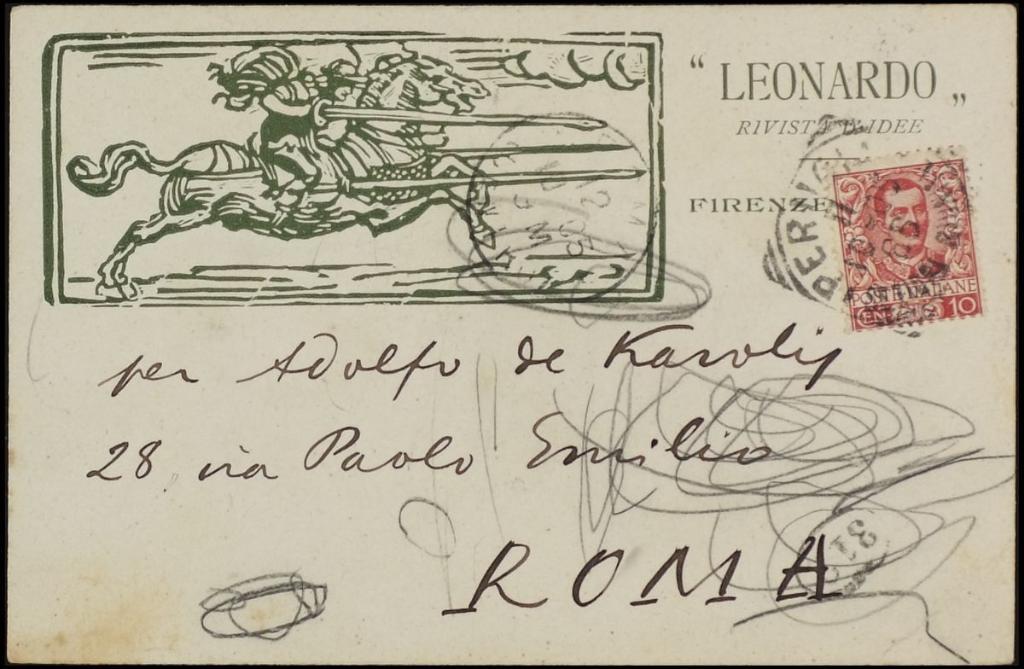 “ LEONARDO „
RIVISTA D'IDEE
FIRENZE
POSTE ITALIANE
10
per Adolfo de Karolis
28 via Paolo Emilio
ROMA
31